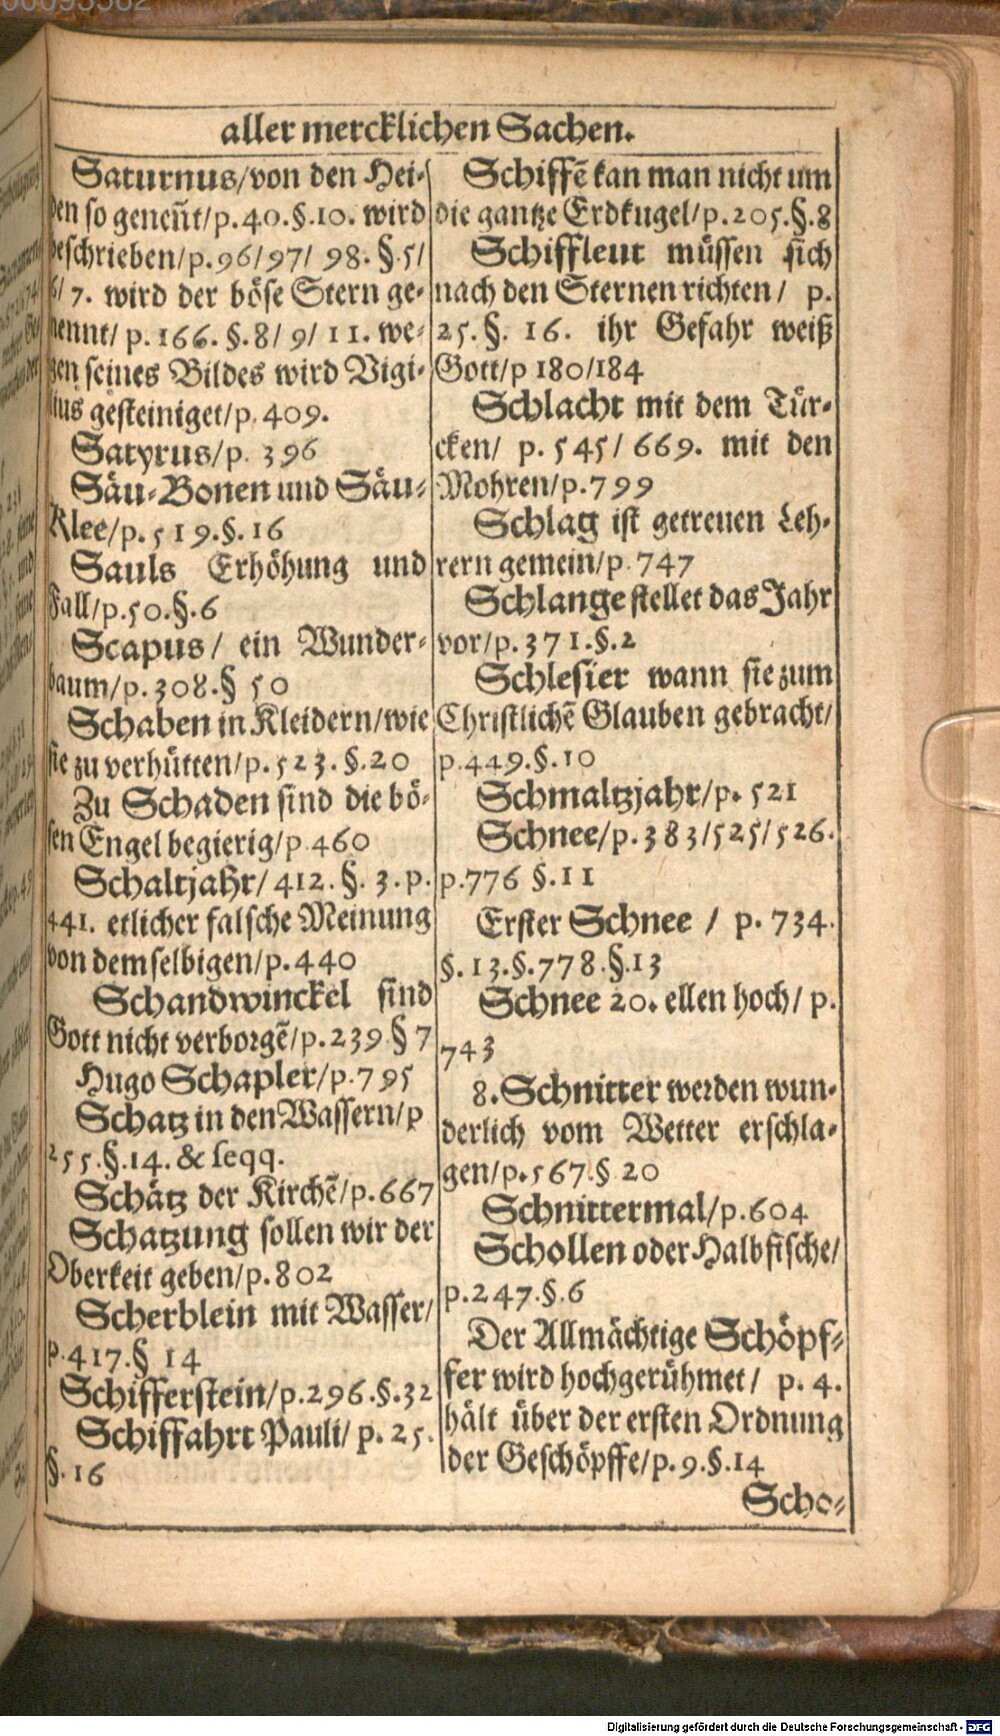 aller mercklichen Sachen.
Saturnus/von den Hei-
den so geneñt/p.40.§.10. wird
beschrieben/p.96/97/ 98. §.5/
6/ 7. wird der böse Stern ge-
nennt/ p. 166. §.8/ 9/ 11. we-
gen seines Bildes wird Vigi-
lius gesteiniget/p. 409.
Satyrus/p. 396
Säu-Bonen und Säu-
Klee/p.519.§.16
Sauls Erhöhung und
Fall/p.50.§.6
Scapus/ ein Wunder-
baum/p.308.§ 50
Schaben in Kleidern/wie
sie zu verhütten/p.523.§.20
Zu Schaden sind die bö-
sen Engel begierig/p.460
Schaltjahr/ 412. §. 3. p.
441. etlicher falsche Meinung
von demselbigen/p.440
Schandwinckel sind
Gott nicht verborgẽ/p.239.§ 7
Hugo Schapler/p.795
Schatz in den Wassern/p
255.§.14. & seqq.
Schätz der Kirchẽ/p.667
Schatzung sollen wir der
Oberkeit geben/p.802
Scherblein mit Wasser/
p.417.§ 14
Schifferstein/p.296.§.32
Schiffahrt Pauli/ p. 25.
§. 16
Schiffẽ kan man nicht um
die gantze Erdkugel/p.205.§.8
Schiffleut müssen sich
nach den Sternen richten/ p.
25.§. 16. ihr Gefahr weiß
Gott/p 180/184
Schlacht mit dem Tür-
cken/ p. 545/ 669. mit den
Mohren/p.799
Schlag ist getreuen Leh-
rern gemein/p.747
Schlange stellet das Jahr
vor/p.371.§.2
Schlesier wann sie zum
Christlichẽ Glauben gebracht/
p.449.§.10
Schmaltzjahr/p. 521
Schnee/p.383/525/526.
p.776 §.11
Erster Schnee / p. 734.
§.13.§.778.§.13
Schnee 20. ellen hoch/ p.
743
8. Schnitter werden wun-
derlich vom Wetter erschla-
gen/p.567.§ 20
Schnittermal/p.604
Schollen oder Halbfische/
p.247.§.6
Der Allmächtige Schöpf-
fer wird hochgerühmet/ p. 4.
hält über der ersten Ordnung
der Geschöpffe/p.9.§.14
Scho-
Digitalisierung gefördert durch die Deutsche Forschungsgemeinschaft - DFG